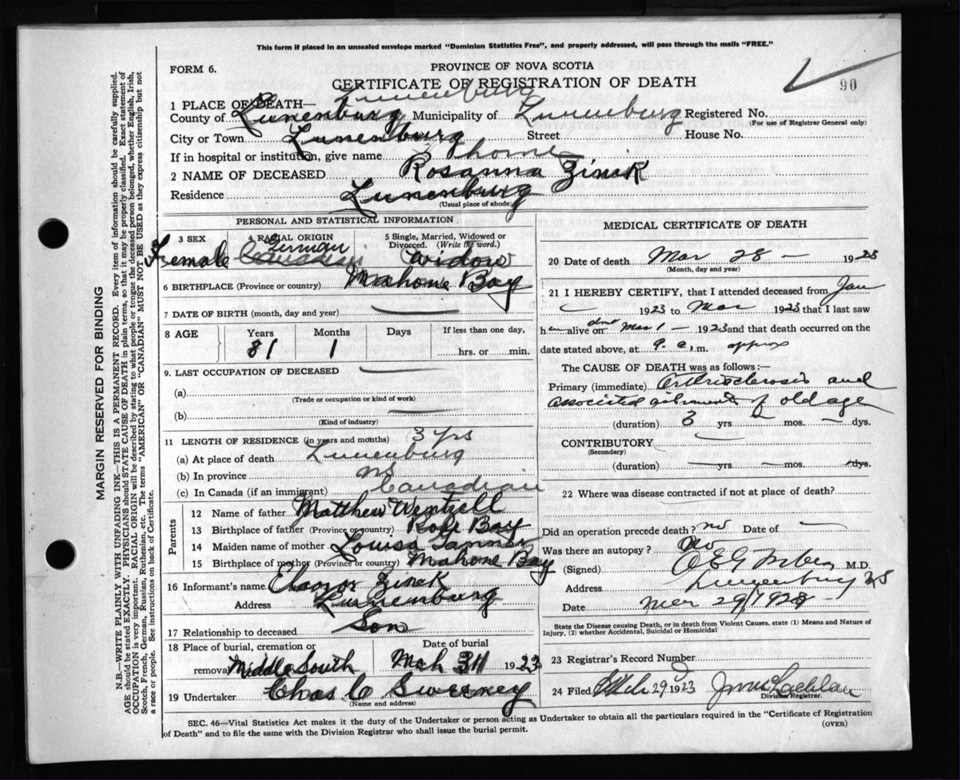 This form if placed in an unsealed envelope marked "Dominion Statistics Free", and properly addressed, will pass through the mails "FREE."
FORM 6.
PROVINCE OF NOVA SCOTIA
90
CERTIFICATE OF REGISTRATION OF DEATH
1 PLACE OF DEATH— Lunenburg
County of Lunenburg Municipality of Lunenburg Registered No.
(For use of Registrar General only)
City or Town Lunenburg Street House No.
If in hospital or institution, give name home
2 NAME OF DECEASED Rosanna Zinck
Residence Lunenburg
(Usual place of abode)
PERSONAL AND STATISTICAL INFORMATION
3 SEX Female
4 RACIAL ORIGIN German Canadian
5 Single, Married, Widowed or Divorced. (Write the word.) Widow
6 BIRTHPLACE (Province or country) Mahone Bay
7 DATE OF BIRTH (month, day and year)
8 AGE Years 81 Months 1 Days If less than one day, hrs. or min.
9. LAST OCCUPATION OF DECEASED
(a)
(Trade or occupation or kind of work)
(b)
(Kind of industry)
11 LENGTH OF RESIDENCE (in years and months) 3 yrs
(a) At place of death Lunenburg
(b) In province NS
(c) In Canada (if an immigrant) Canadian
Parents
12 Name of father Matthew Wentzell
13 Birthplace of father (Province or country) Rose Bay
14 Maiden name of mother Louisa Tanner
15 Birthplace of mother (Province or country) Mahone Bay
16 Informant's name Zinck
Address Lunenburg
17 Relationship to deceased Son
18 Place of burial, cremation or removal Middle South
Date of burial Mch 31 1923
19 Undertaker Chas C Sweeney
(Name and address)
MEDICAL CERTIFICATE OF DEATH
20 Date of death Mar 28 — 1923
(Month, day and year)
21 I HEREBY CERTIFY, that I attended deceased from Jan
1923 to Mar 1923 that I last saw
h alive on Mar 1 — 1923 and that death occurred on
date stated above, at 9. a.m. approx
The CAUSE OF DEATH was as follows:—
Primary (immediate) and
associated ailments of old age
(duration) 3 yrs mos. dys.
CONTRIBUTORY
(Secondary)
(duration) yrs mos. dys.
22 Where was disease contracted if not at place of death?
Did an operation precede death? no Date of
Was there an autopsy? No
(Signed) M.D.
Address Lunenburg NS
Date Mar 29/1923
State the Disease causing Death, or in death from Violent Causes, state (1) Means and Nature of Injury, (2) whether Accidental, Suicidal or Homicidal
23 Registrar's Record Number
24 Filed 29 1923
Division Registrar.
SEC. 46—Vital Statistics Act makes it the duty of the Undertaker or person acting as Undertaker to obtain all the particulars required in the "Certificate of Registration
of Death" and to file the same with the Division Registrar who shall issue the burial permit.
(OVER)
MARGIN RESERVED FOR BINDING
N.B.—WRITE PLAINLY WITH UNFADING INK—THIS IS A PERMANENT RECORD. Every item of information should be carefully supplied.
AGE should be stated EXACTLY. PHYSICIANS should STATE CAUSE OF DEATH in plain terms, so that it may be properly classified. Exact statement of
OCCUPATION is very important. RACIAL ORIGIN will be described by stating to what people or tongue the deceased person belonged, whether English, Irish,
Scotch, French, German, Russian, Ruthenian, etc. The terms "AMERICAN" or "CANADIAN" MUST NOT BE USED as they express citizenship but not
a race or people. See instructions on back of Certificate.